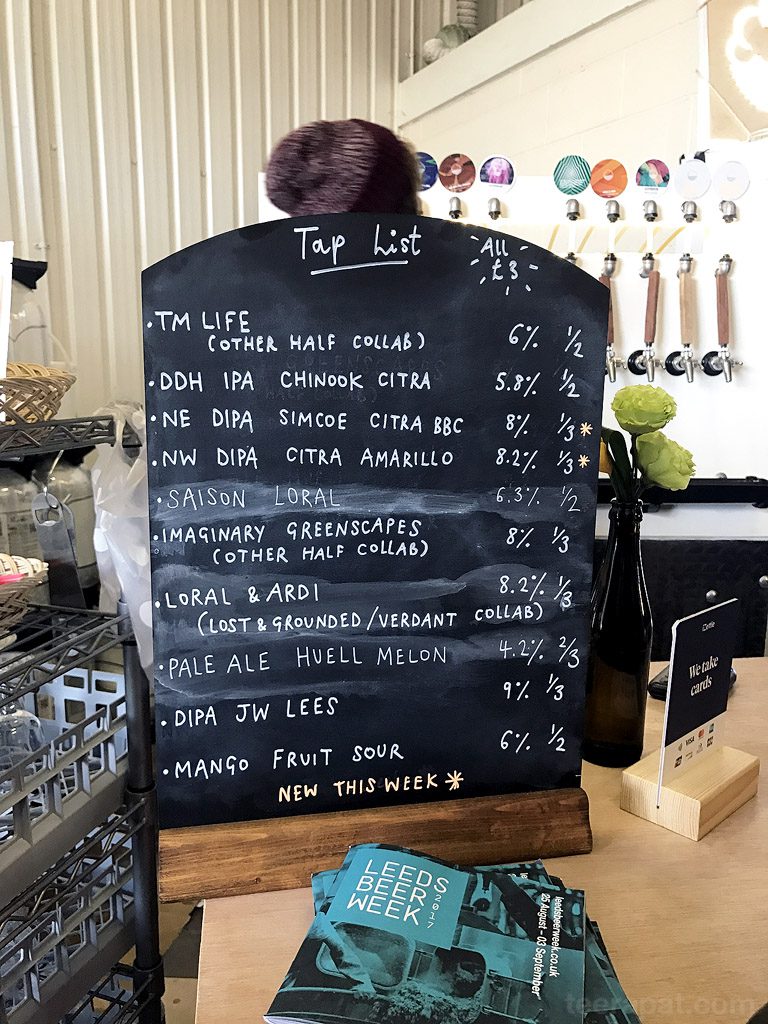 Tap List
All £3
• TM LIFE 6% 1/2
(OTHER HALF COLLAB)
• DDH IPA CHINOOK CITRA 5.8% 1/2
• NE DIPA SIMCOE CITRA BBC 8% 1/3 *
• NW DIPA CITRA AMARILLO 8.2% 1/3 *
• SAISON LORAL 6.3% 1/2
• IMAGINARY GREENSCAPES 8% 1/3
(OTHER HALF COLLAB)
• LORAL & ARDI 8.2% 1/3
(LOST & GROUNDED/VERDANT COLLAB)
• PALE ALE HUELL MELON 4.2% 2/3
• DIPA JW LEES 9% 1/3
• MANGO FRUIT SOUR 6% 1/2
NEW THIS WEEK *
We take
cards
VISA
LEEDS
BEER
WEEK
2017
leedsbeerweek.co.uk
25 August - 03 September
teerapat.com